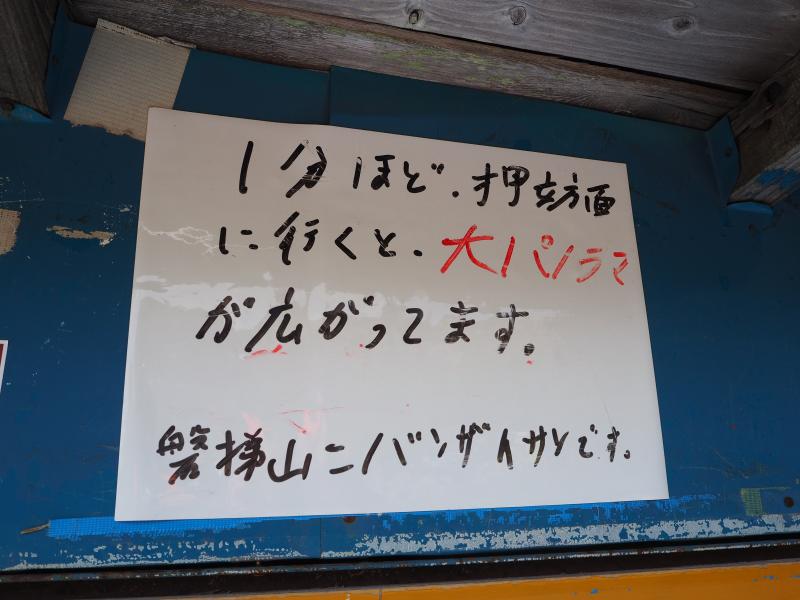 1分ほど、押立方面
に行くと、大パノラマ
が広がってます。
磐梯山＝バンザイサンです。